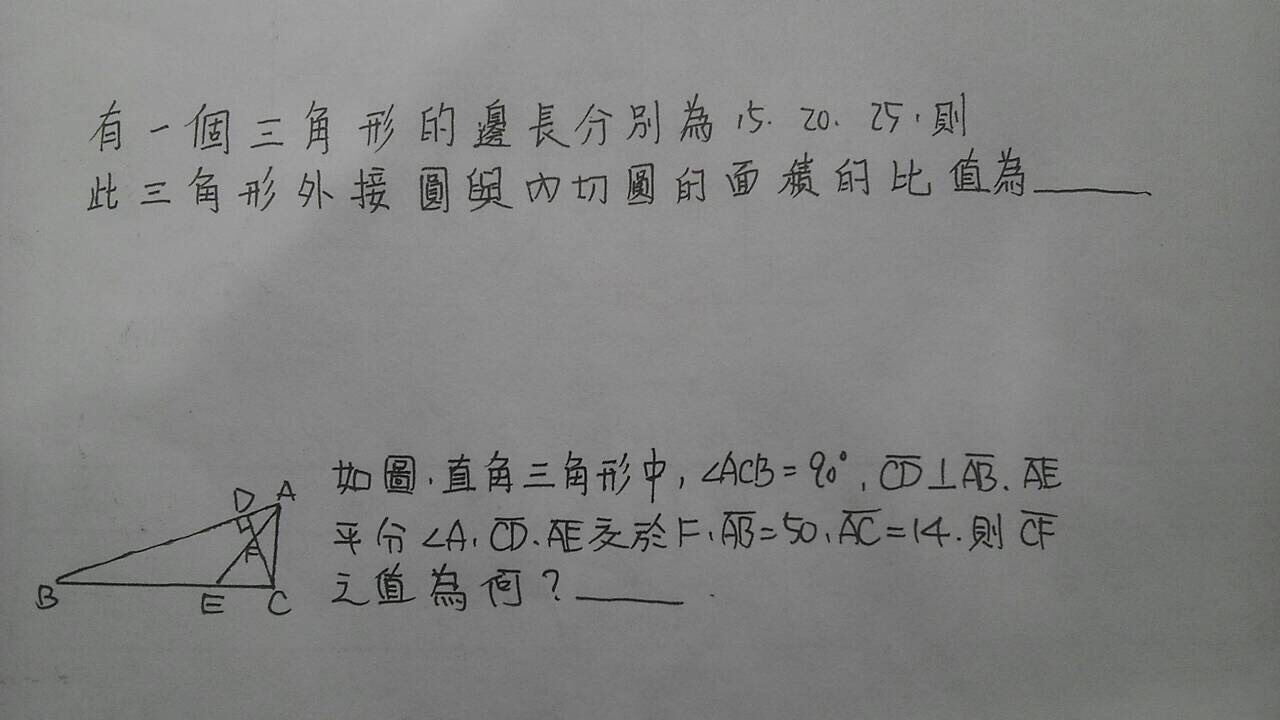 有一個三角形的邊長分別為15、20、25,則
此三角形外接圓與內切圓的面積的比值為______
如圖,直角三角形中,∠ACB=90°,C̅D̅⊥A̅B̅、A̅E̅
平分∠A,C̅D̅、A̅E̅交於F,A̅B̅=50,A̅C̅=14,則C̅F̅
之值為何?______
D A
F
B E C